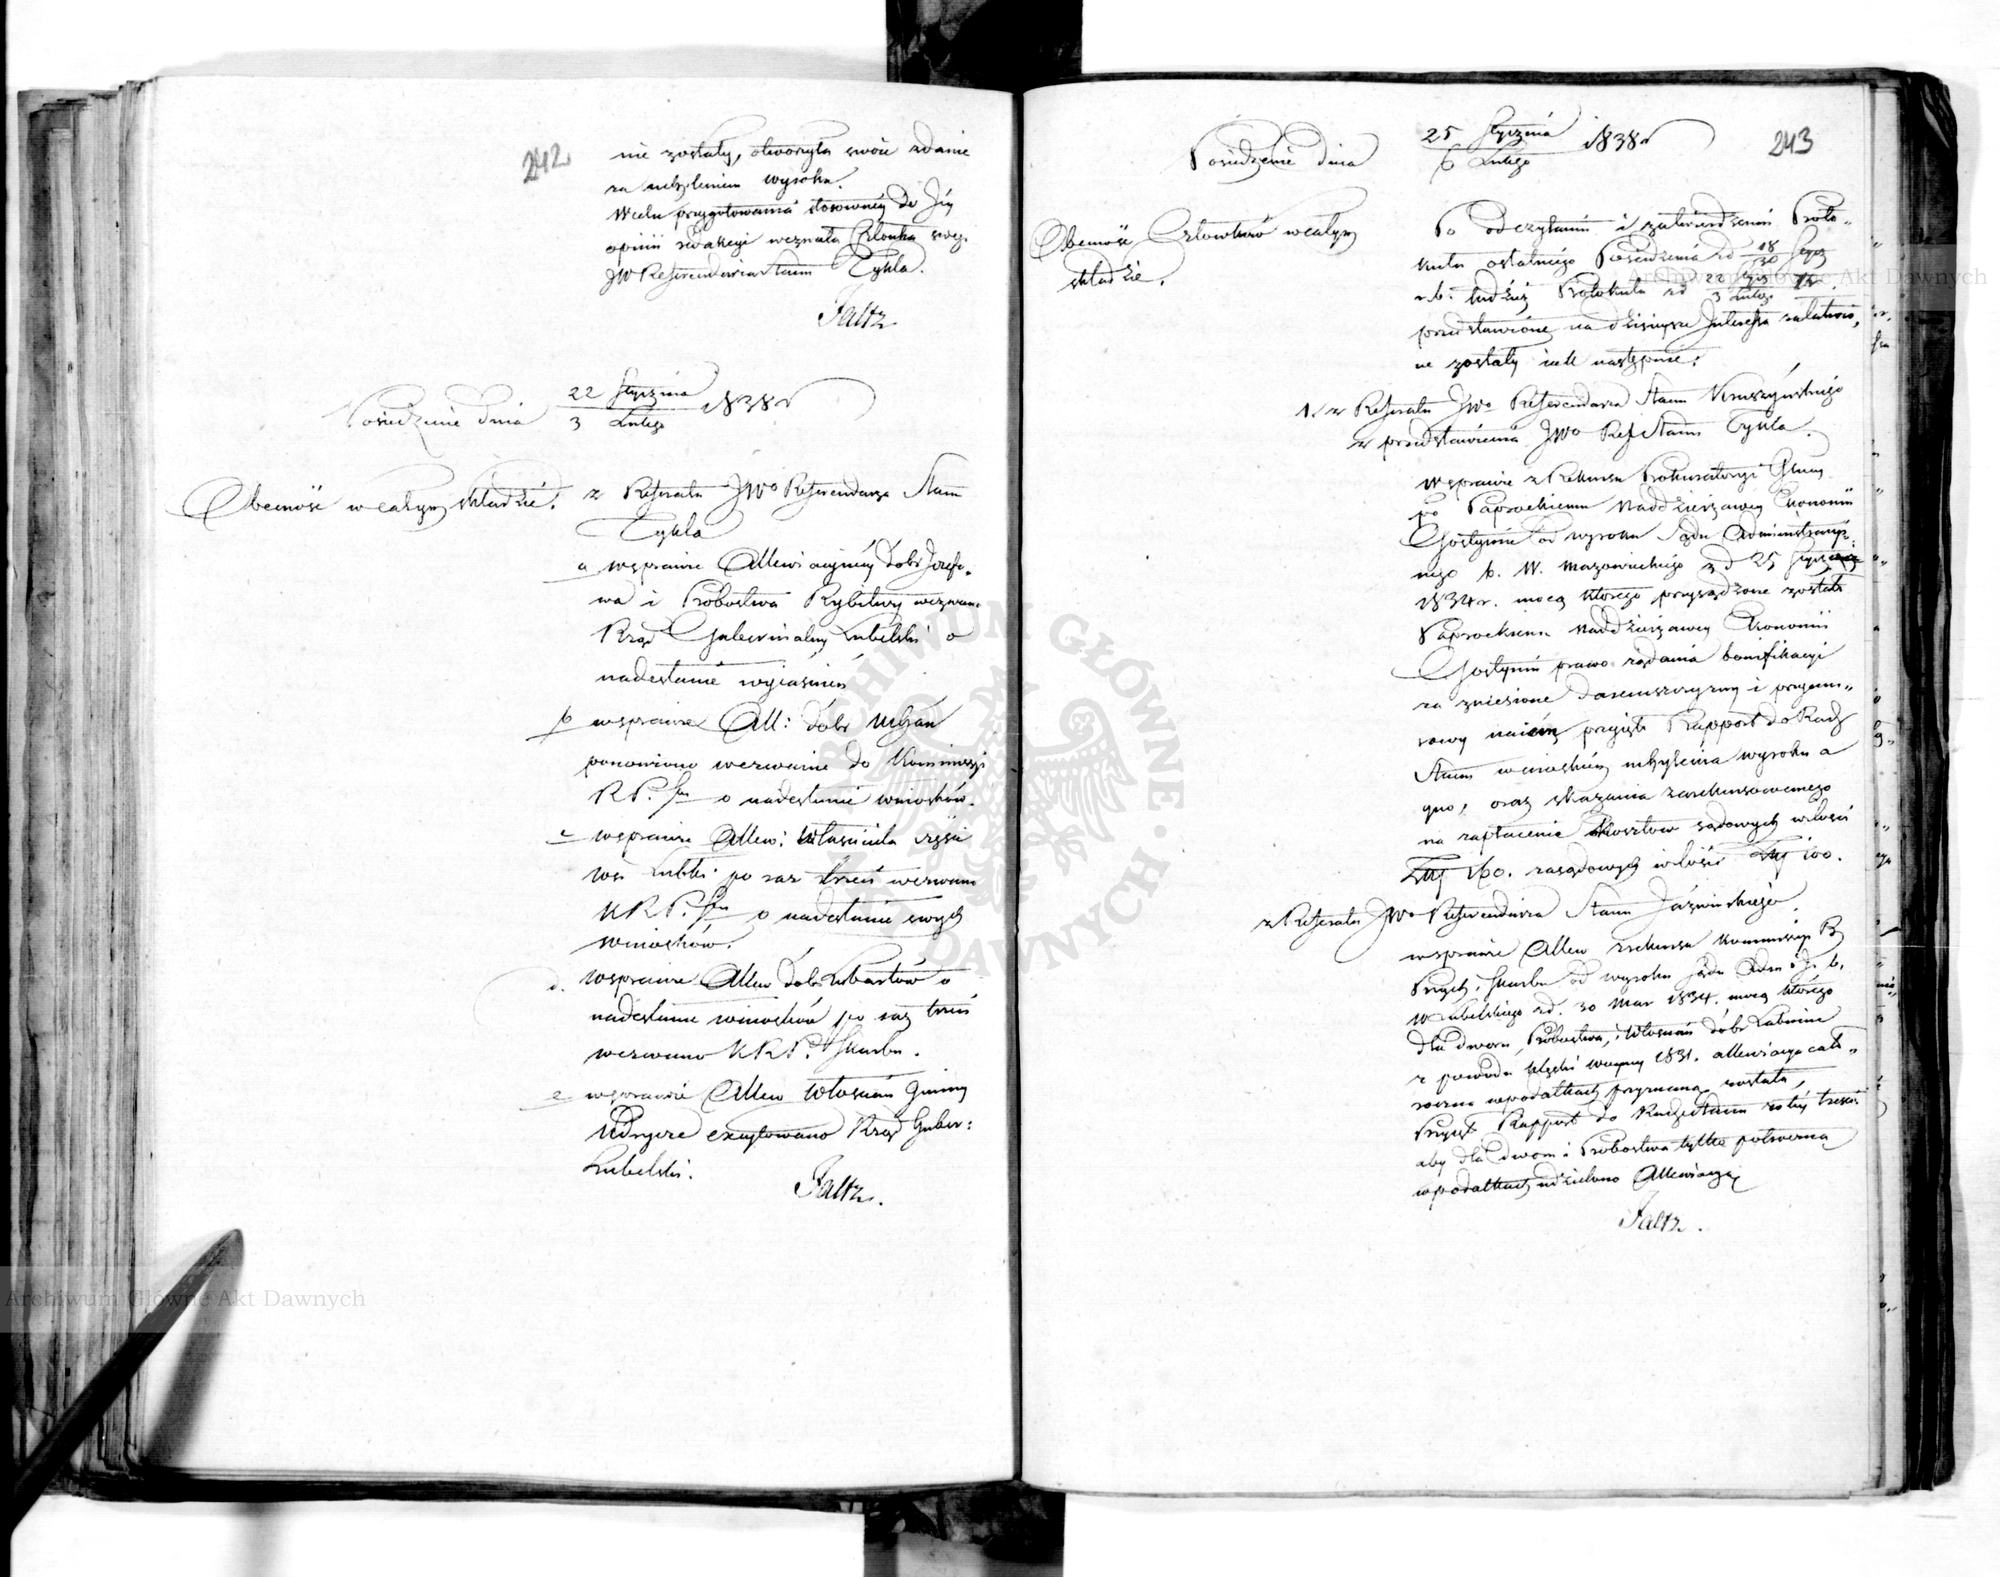 242
nie zostały, otworzyła swoie zdanie
za uchyleniem wyroku.
W celu przygotowania stosownéy do Jéy
opinii redakcyi wezwała Członka swego
JW Referendarza Stanu Tykla.
Faltz
Posiedzenie dnia 22 Stycznia / 3 Lutego 1838 r
Obecność w całym składzie.
z Referatu JWo Referendarza Stanu
Tykla
a w sprawie Allewiacyinéy dóbr Józefo-
wa i Probostwa Rybitwy wezwano
Rząd Gubernialny Lubelski o
nadesłanie wyiaśnień
b w sprawie All: dóbr
ponowiono wezwanie do Kommissyi
R P. Sbu o nadesłanie wniosków.
c w sprawie Allew: Właściciela części
wsi Lubki po raz trzeci wezwano
K R P. Sbu o nadesłanie swych
wniosków.
d. w sprawie Allew dóbr Lubartów o
nadesłanie wniosków po raz trzeci
wezwano K R P. i Skarbu.
e w sprawie Allew Włościan Gminy
Udrycze excytowano Rząd Guber:
Lubelski.
Faltz.
243
Posiedzenie dnia 25 Stycznia / 6 Lutego 1838 r
Obecność Członków w całym
składzie.
Po odczytaniu i zatwierdzeniu Proto-
kułu ostatniego Posiedzenia z d 18/30 Stycz
r. b. tudzież Protokułu z d 22 Stycz / 3 Lutego
przedstawione na dzisieysze Interessa załatwio-
ne zostały iak następnie:
1. z Referatu JWo Referendarza Stanu Kruszyńskiego
z przedstawienia JWo Ref Stanu Tykla.
w sprawie z Rekursu Prokuratoryi Gnéy
po Paprockiemu Naddzierżawcy Ekonomii
Gostynin od wyroku Sądu Administracyi-
nego b. W. Mazowieckiego z d 25 Stycz
1834 r. mocą którego przysądzone zostało
Paprockiemu Naddzierżawcy Ekonomii
Gostynin prawo żądania bonifikacyi
za zniesione daremszczyzny i przymu-
sowy naiem przyięto Rapport do Rady
Stanu w wnioskiem uchylenia wyroku a
quo, oraz skazania zarekursowanego
na zapłacenie kosztów sądowych w ilości
Złp 160. zasądowych w ilości Złp 100.
z Referatu JWo Referendarza Stanu Jaźwińskiego.
w sprawie Allew z rekursu Kommissyi R
Przych i Skarbu od wyroku Sądu Adm: J. b.
W Lubelskiego z d. 30 Mar 1834. mocą którego
dla dworu, Probostwa, i Włościan dóbr Łabunie
z powodu klęski woyny 1831. allewiacya cało-
roczna w podatkach przyznaną została,
Przyięt Rapport do Rady Stanu z otéy treści
aby dla dworu i Probostwa tylko potrzebną
w podatkach udzielono Allewiacyę
Faltz.
Archiwum Główne Akt Dawnych
Archiwum Główne Akt Dawnych
ARCHIWUM GŁÓWNE AKT DAWNYCH